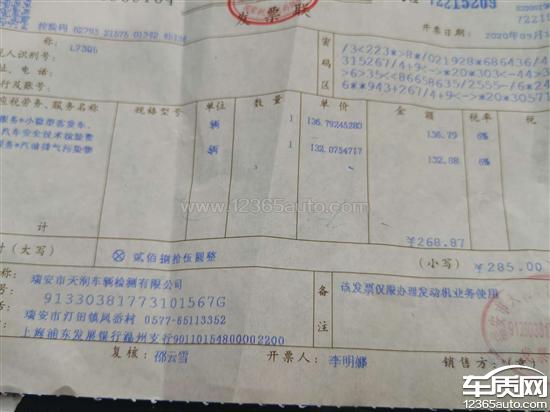 发票联
72215209
校验码 02793 21575 01342
开票日期: 2020年09月
称: L7306
人识别号:
址、电话:
行及账号:
密码区
/3<223*>8*/021928*686436/4
315267/4+9<->*20*303<-44>
>6>35<86658635/2555-/6*24
6**943+267/4+9<->*20*30577
应税劳务、服务名称
规格型号
单位
数量
单价
金额
税率
税
服务*小微型客货车、
辆
1
136.79245283
136.79
6%
汽车安全技术检验费
服务*汽油排气污染物
辆
1
132.0754717
132.08
6%
www.12365auto.com
计
¥268.87
计（大写）
⊗贰佰捌拾伍圆整
（小写）
¥285.00
称:
瑞安市天润车辆检测有限公司
人识别号:
91330381773101567G
址、电话:
瑞安市汀田镇凤岙村 0577-65113352
行及账号:
上海浦东发展银行温州支行90110154800002200
备注
该发票仅限办理发动机业务使用
复核: 邵云雪
开票人: 李明娜
销售方: (章)
车质网
12365auto.com